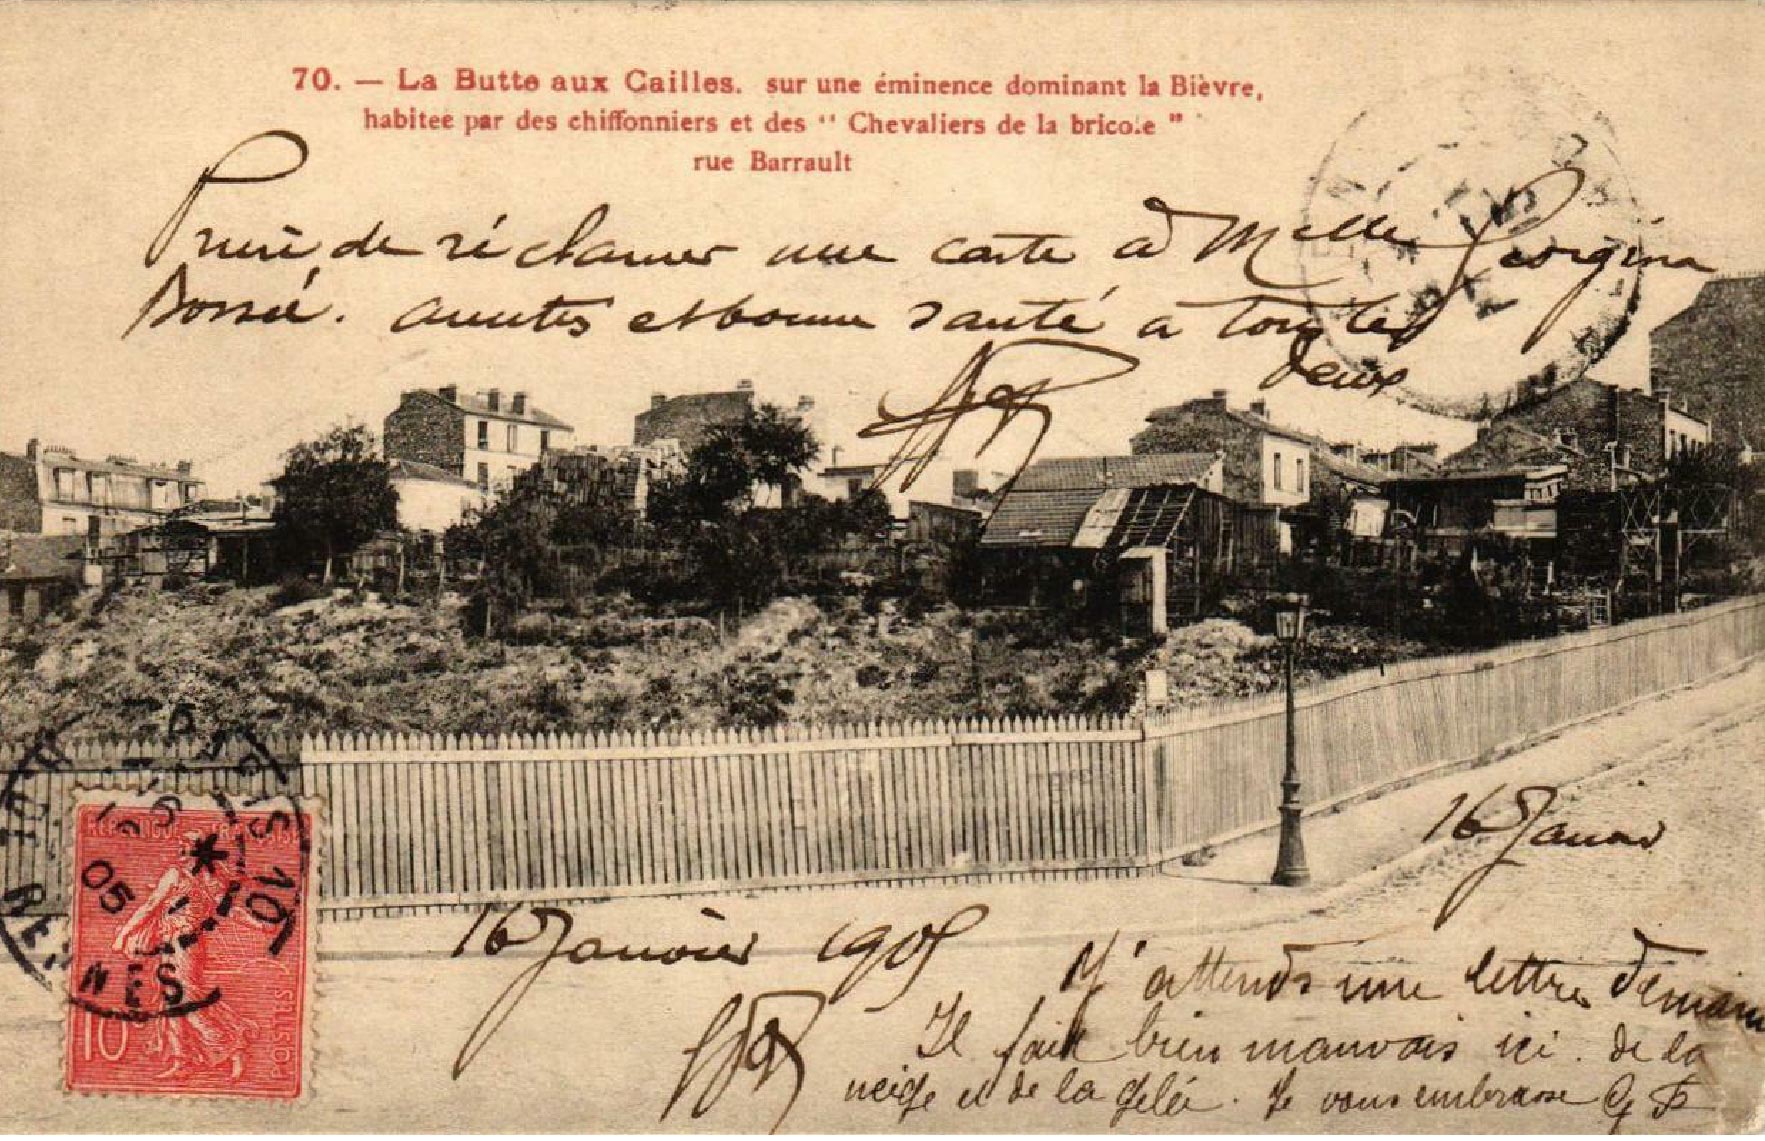 70. — La Butte aux Cailles. sur une éminence dominant la Bièvre,
habitee par des chiffonniers et des “ Chevaliers de la bricole ”
rue Barrault
Prière de réclamer une carte à Melle Georgina
amitiés et bonne santé à toutes
deux
16 Janvier
16 Janvier 1905
J'attends une lettre demain
Il fait bien mauvais ici. de la
neige et de la gelée. Je vous embrasse
RENNES
05
10
POSTES